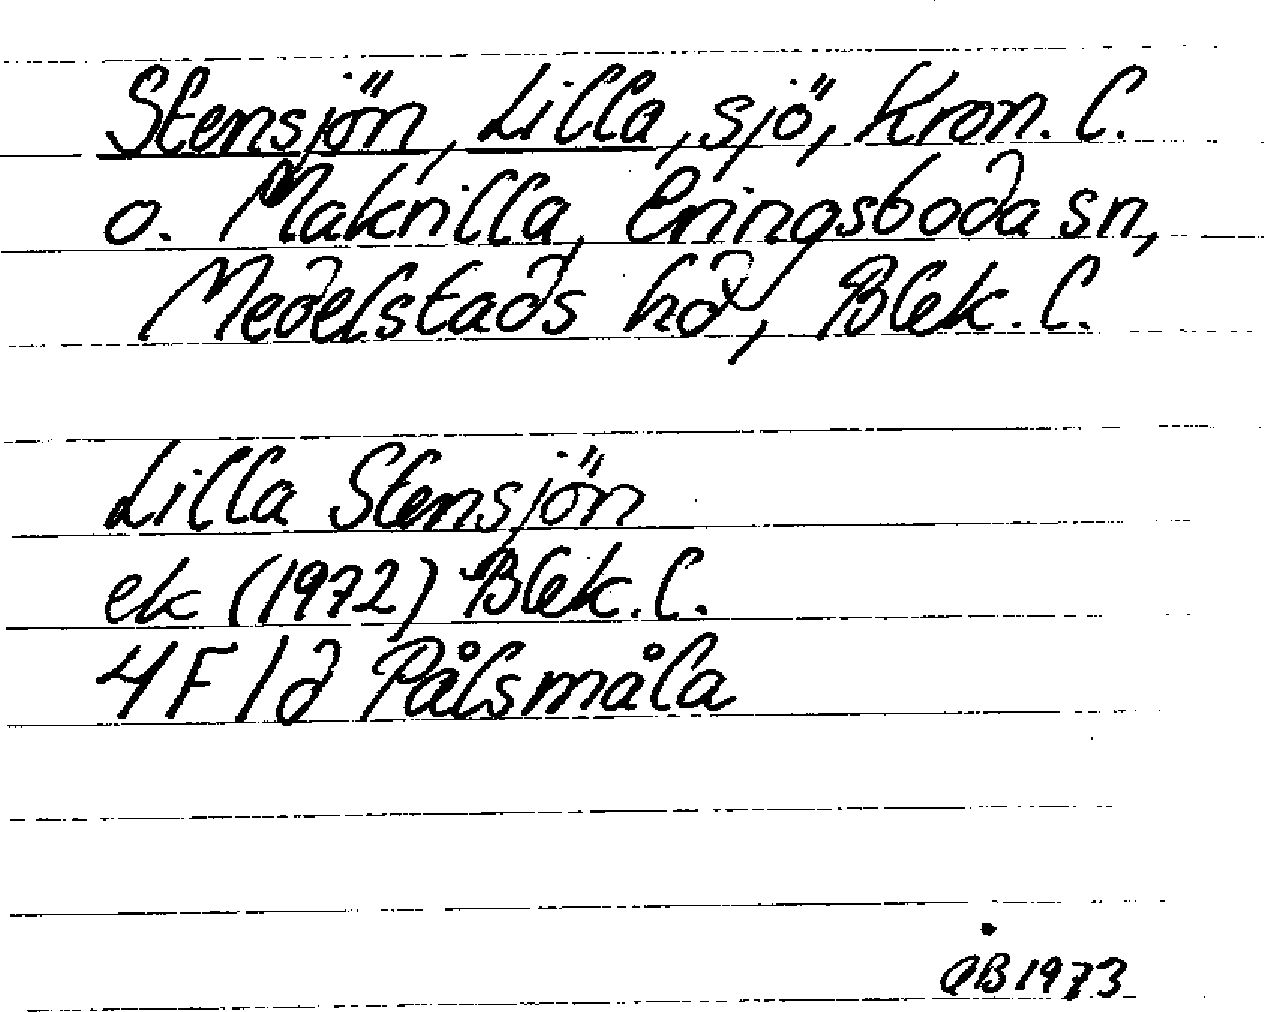 Stensjön, Lilla, sjö, Kron. l.
o. Makrilla, Eringsboda sn,
Medelstads hd, Blek. l.
Lilla Stensjön
ek (1972) Blek. l.
4F 1d Pålsmåla
QB 1973